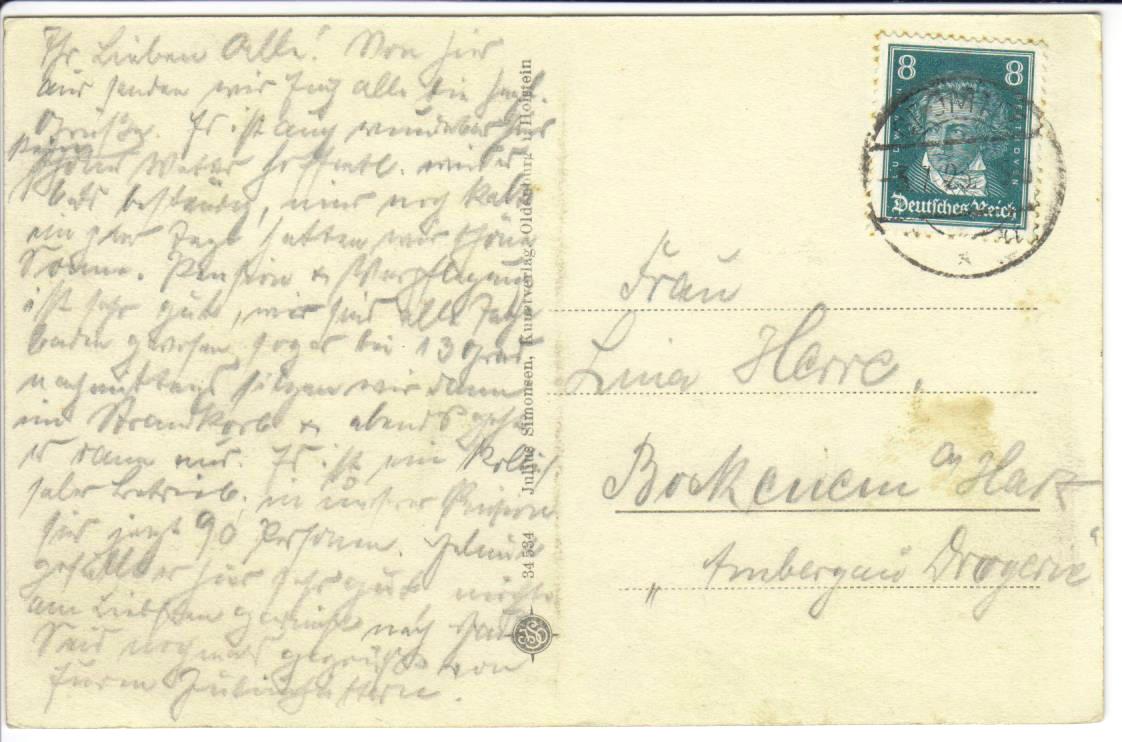 Ihr Lieben Alle! Von hier
aus senden wir Euch alle die herzl.
Grüße. Es ist auch wunderbar hier
schöne Wetter hoffentl. wird es
beständig, nur noch kalt
ein paar Tage hatten wir schöne
Sonne. Pension & Verpflegung
ist sehr gut, wir sind alle Tage
baden gewesen, sogar bei 13 Grad
nachmittags sitzen wir dann
im Strandkorb & abends geht
es dann aus. Es ist ein
Betrieb, in unserer Pension
sind jetzt 90 Personen.
gefällt es hier sehr gut möchte
am Liebsten garnicht nach Haus
Seid nochmals gegrüßt von
Euren
34 534 Julius Simonsen, Kunstverlag, Oldenburg i. Holstein
8 8
Deutsches Reich
Frau
Lina Herre,
Bockenem a/Harz
„Ambergau Drogerie“